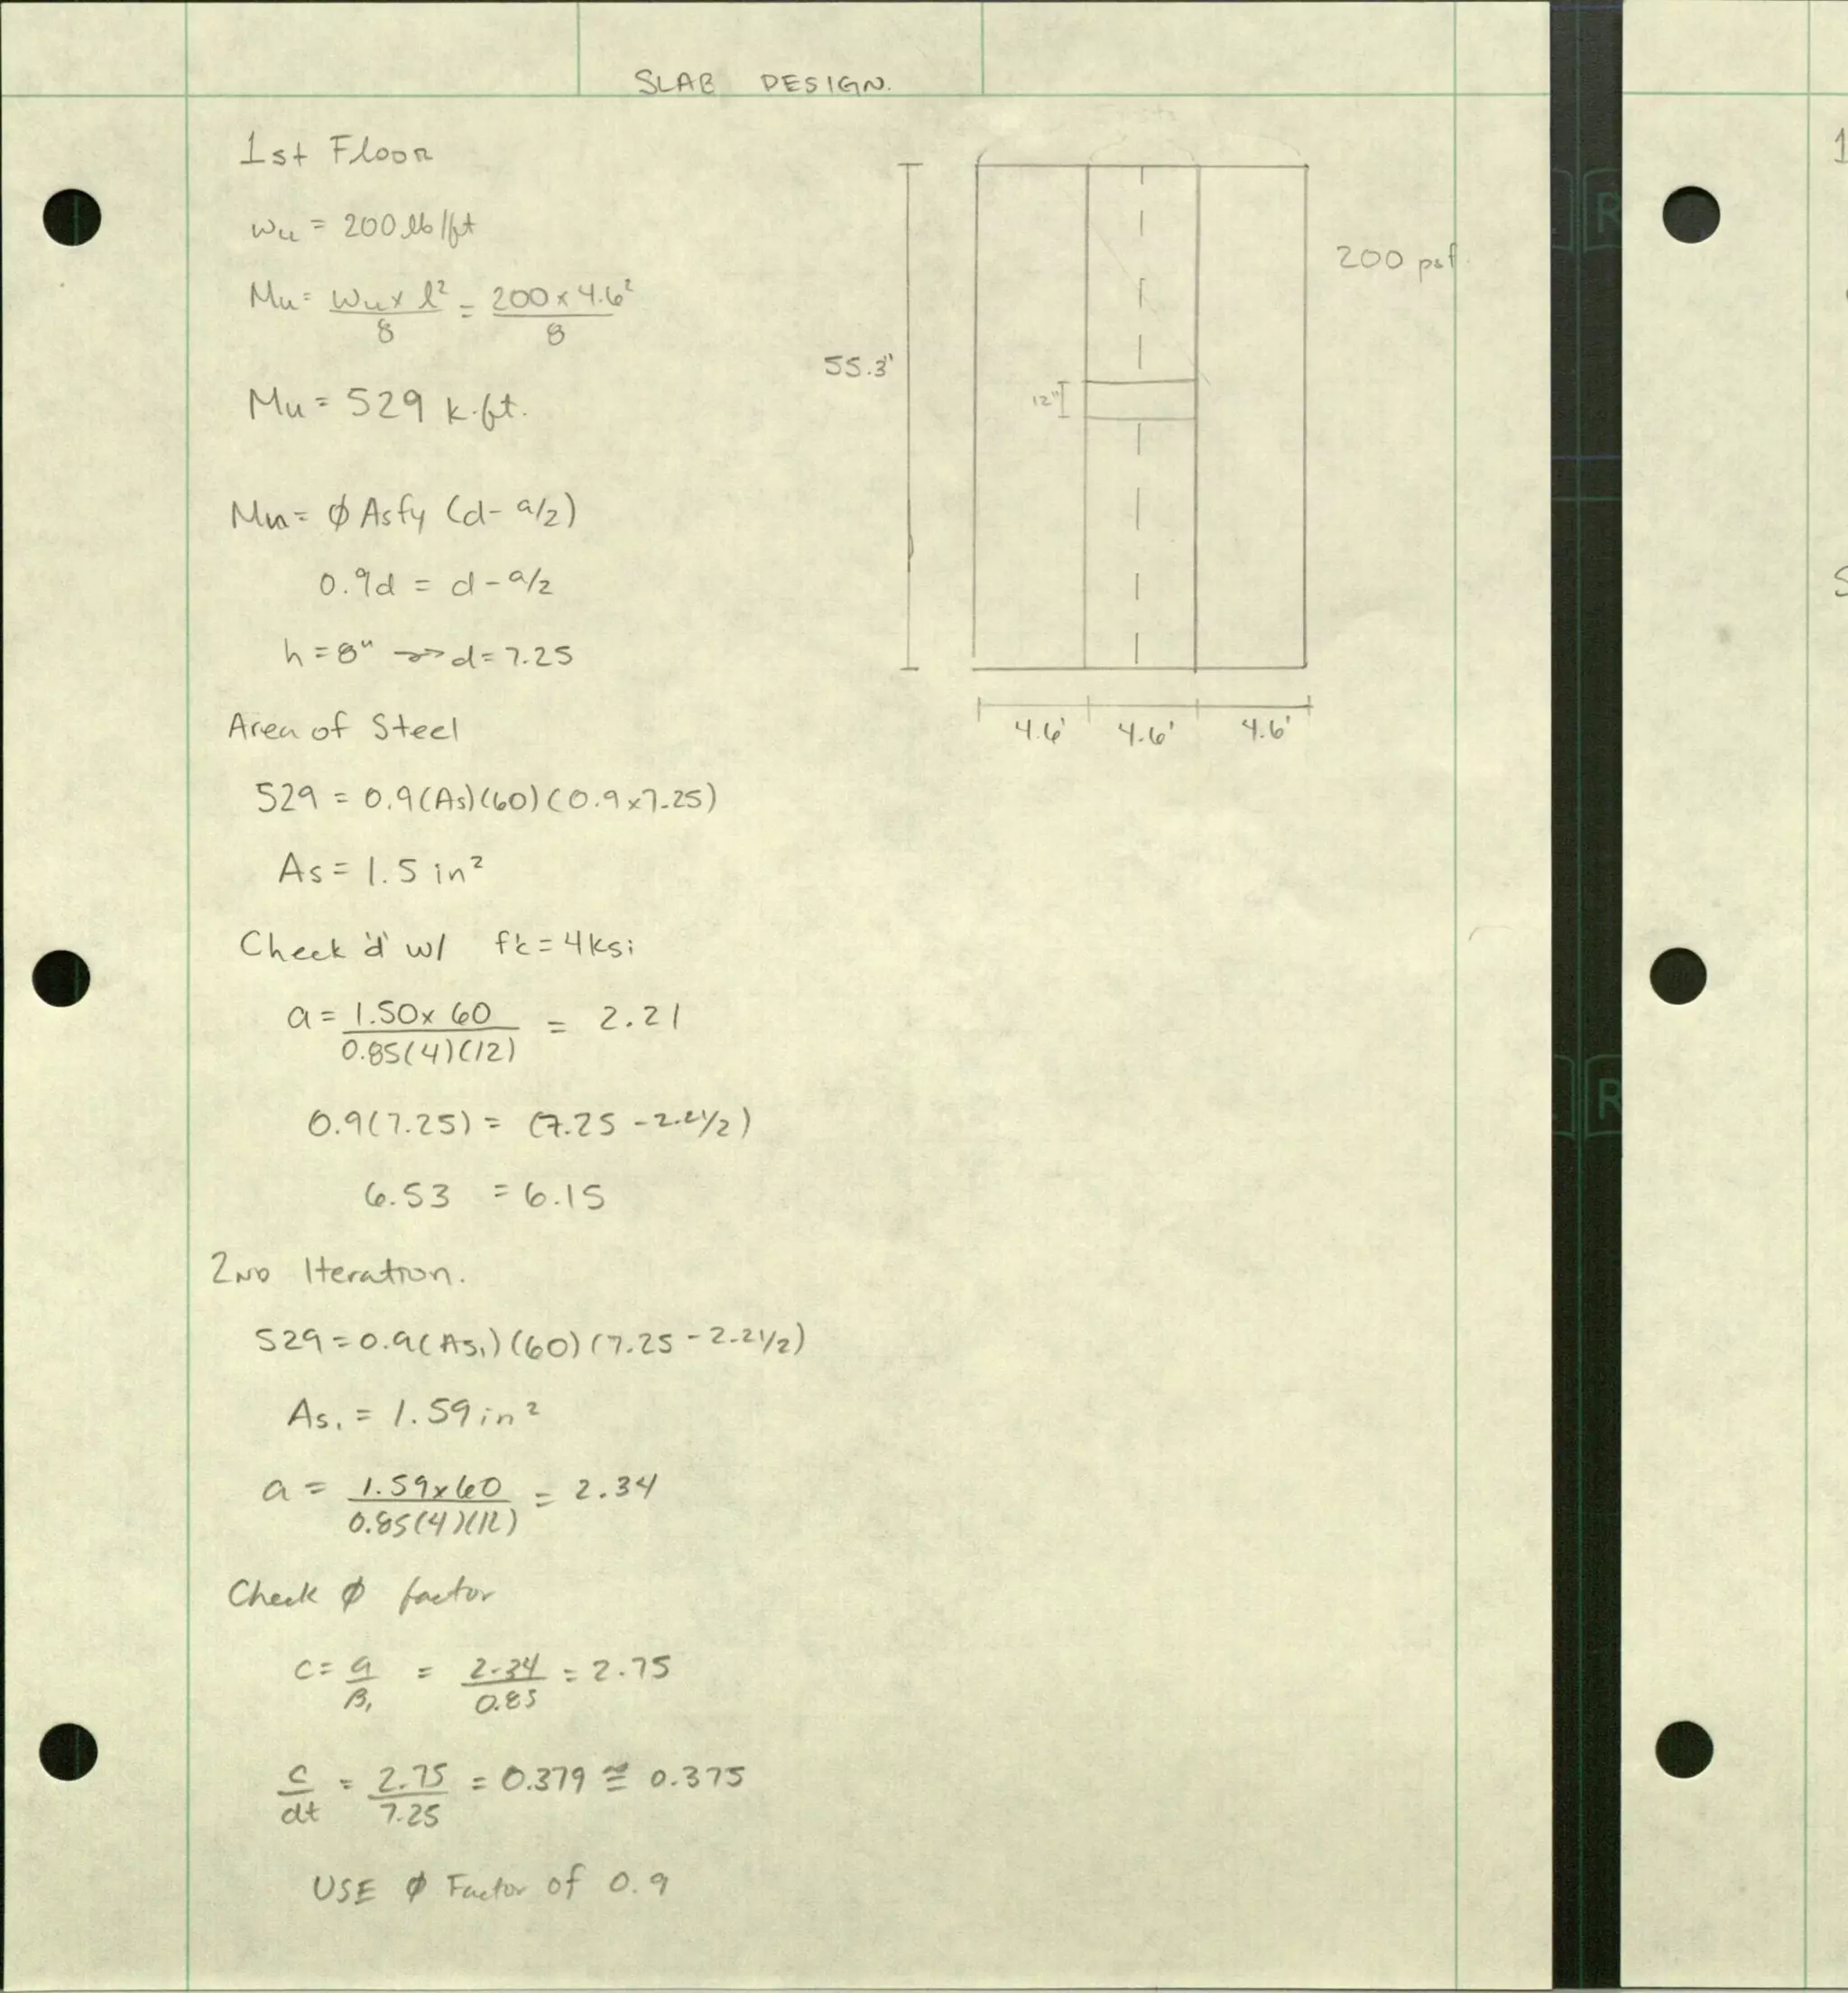 SLAB DESIGN.
1st Floor
wu = 200 lb/ft
Mu = wu x l² / 8 = 200 x 4.6² / 8
Mu = 529 k.ft.
Mn = φ Asfy (d - a/2)
0.9d = d - a/2
h = 8" → d = 7.25
Area of Steel
529 = 0.9(As)(60)(0.9x7.25)
As = 1.5 in²
Check 'd' w/ f'c = 4ksi
a = 1.50x 60 / 0.85(4)(12) = 2.21
0.9(7.25) = (7.25 - 2.21/2)
6.53 = 6.15
2ND Iteration.
529 = 0.9(As₁)(60)(7.25 - 2.21/2)
As₁ = 1.59 in²
a = 1.59x60 / 0.85(4)(12) = 2.34
Check φ factor
c = a / β₁ = 2.34 / 0.85 = 2.75
c / dt = 2.75 / 7.25 = 0.379 ≅ 0.375
USE φ Factor of 0.9
200 psf
55.3'
12"
4.6' 4.6' 4.6'
R
R
1
S